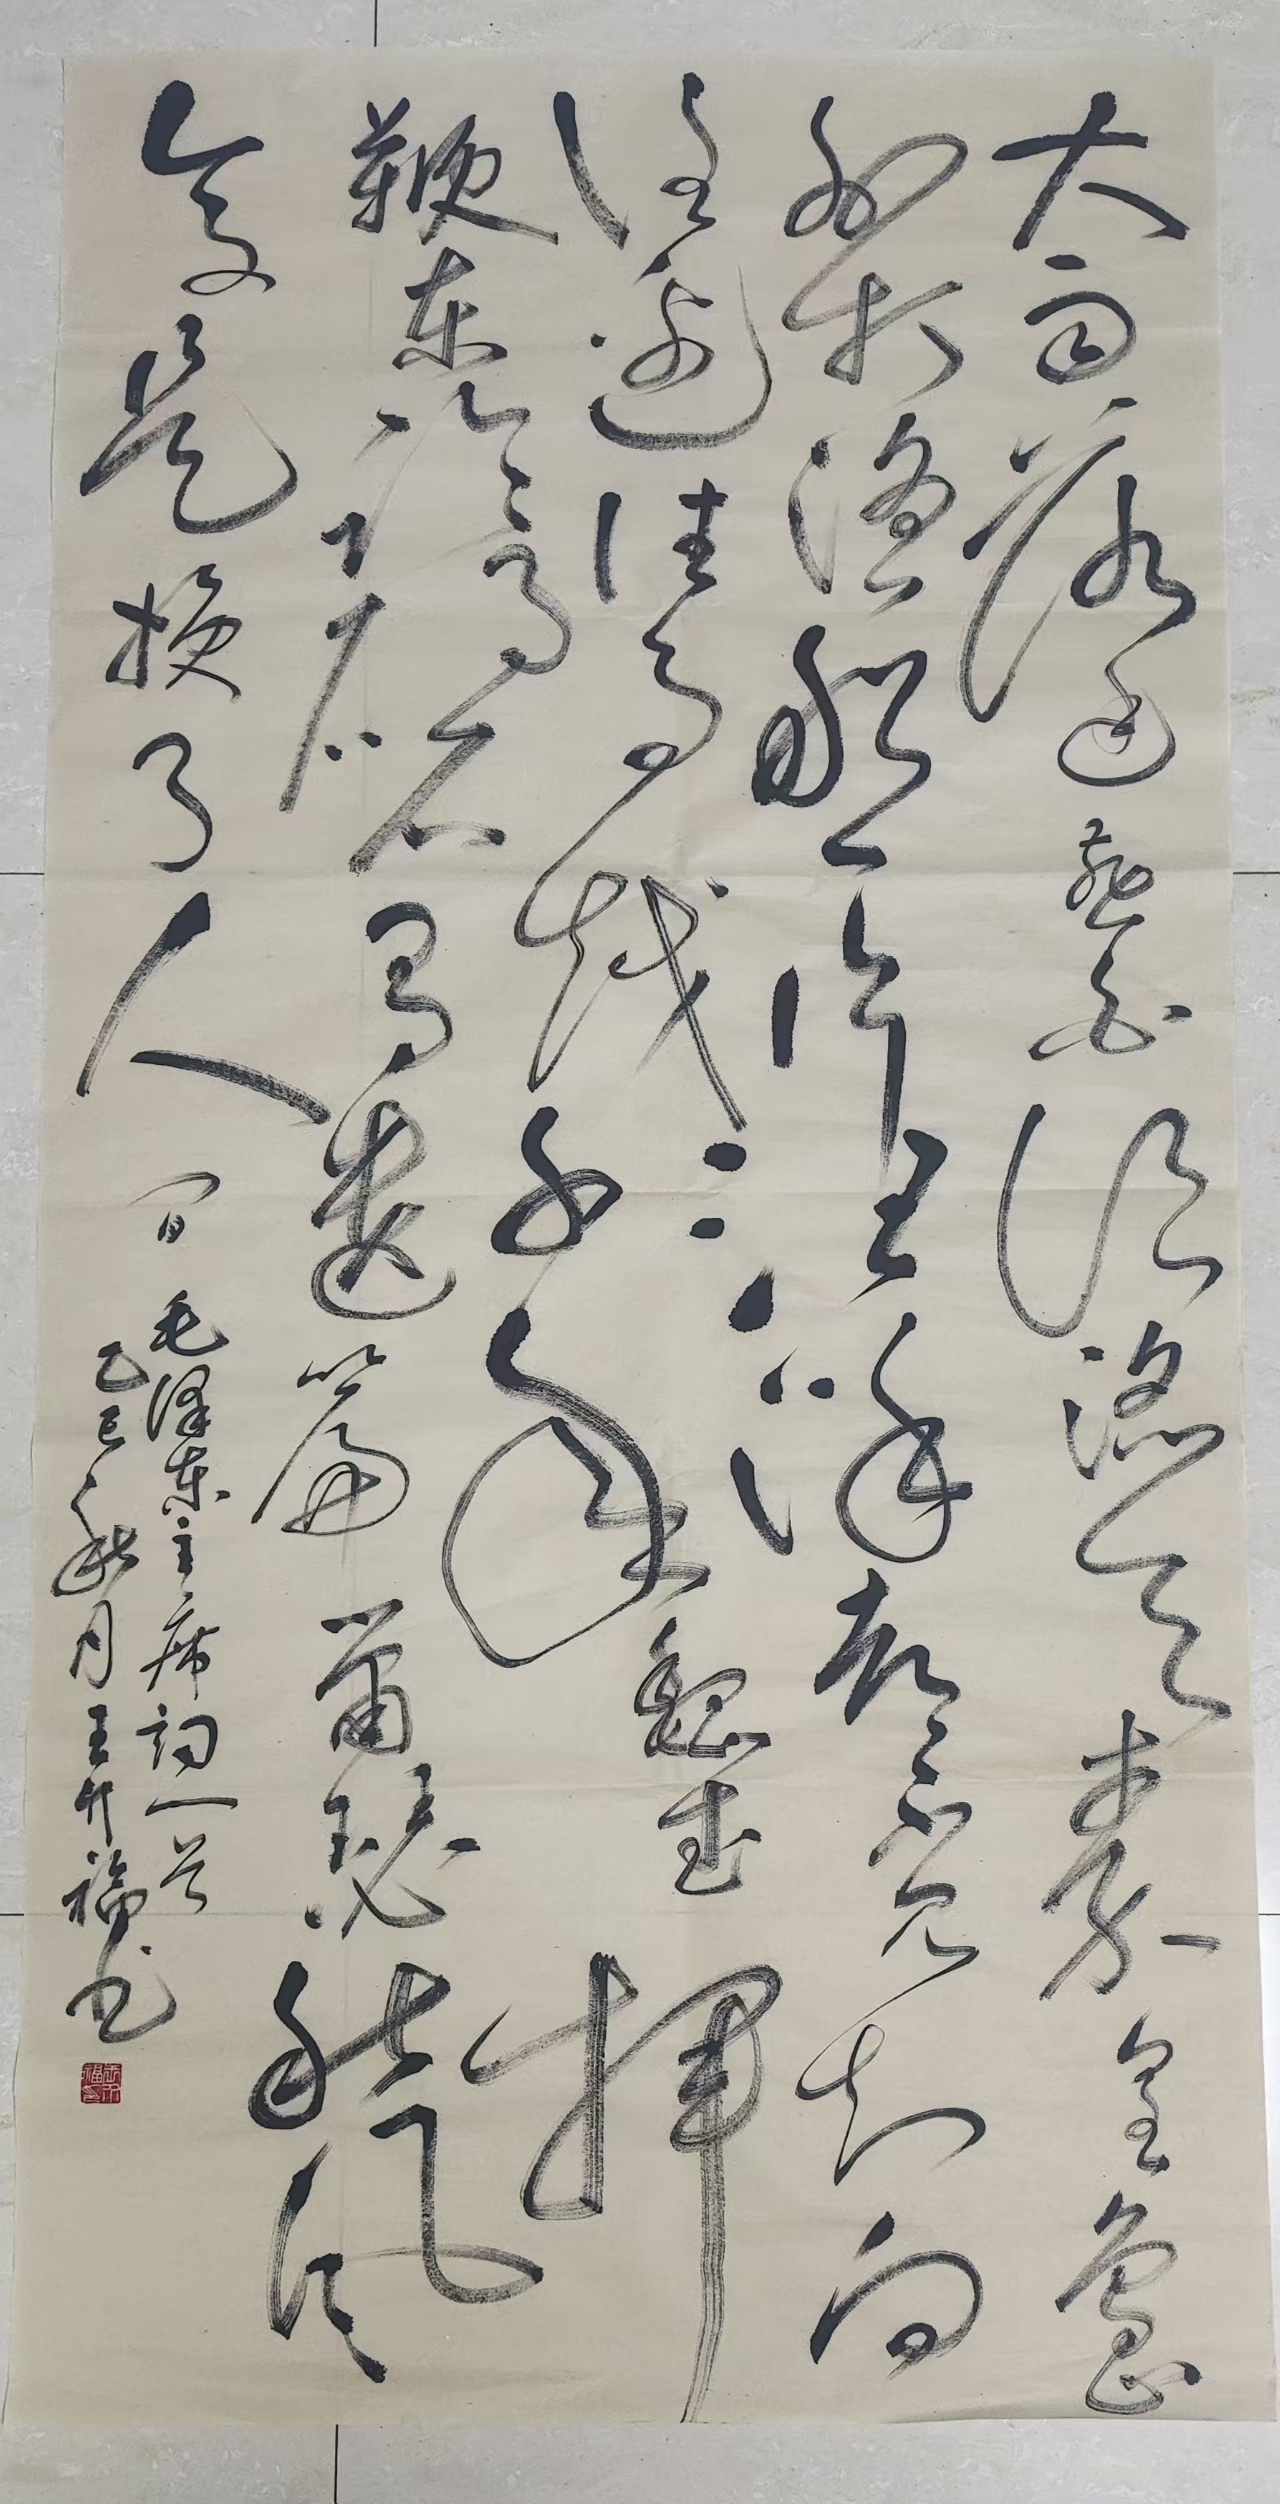 大雨落幽燕白浪滔天秦皇島
外打漁船一片汪洋都不見知向
誰邊往事越千年魏武揮
鞭東臨碣石有遺篇蕭瑟秋風
今又是換了人間
毛澤東主席詞一首
乙巳秋月王升福书